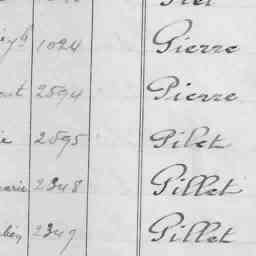 1024 Pierre
2594 Pierre
2595 Pilet
2348 Pillet
2349 Pillet